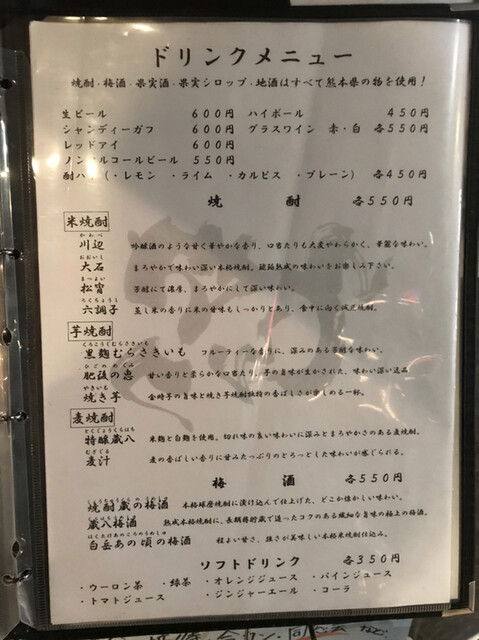 ドリンクメニュー
焼酎・梅酒・果実酒・果実シロップ・地酒はすべて熊本県の物を使用！
生ビール 600円 ハイボール 450円
シャンディーガフ 600円 グラスワイン 赤・白 各550円
レッドアイ 600円
ノンアルコールビール 550円
酎ハイ (・レモン ・ライム ・カルピス ・プレーン) 各450円
焼酎 各550円
米焼酎
かわべ
川辺 吟醸酒のような甘く華やかな香り、口当たりも大変やわらかく、華麗な味わい。
おおいし
大石 まろやかで味わい深い本格焼酎。琥珀熟成の味わいをお楽しみ下さい。
まつよい
松宵 芳醇にて濃厚、まろやかにして深い味わい。
ろくちょうし
六調子 蒸し米の香りに米の甘味もしっかりとあり、食中に向く純正焼酎。
芋焼酎
くろこうじむらさきいも
黒麹むらさきいも フルーティーな香りに、深みのある芳醇な味わい。
ひごのめぐみ
肥後の恵 甘い香りと柔らかな口当たり、芋の旨味が生かされた、味わい深い逸品
やきいも
焼き芋 金時芋の旨味と焼き芋焼酎独特の香ばしさが楽しめる一杯。
麦焼酎
とくじょうくらはち
特醸蔵八 米麹と白麹を使用。切れ味の良い味わいに深みとまろやかさのある麦焼酎。
むぎじる
麦汁 麦の香ばしい香りに甘みたっぷりのとろっとした味わいが感じられる。
梅酒 各550円
しょうちゅうくらのうめしゅ
焼酎蔵の梅酒 本格球磨焼酎に漬け込んで仕上げた、どこか懐かしい味わい。
くらはちうめしゅ
蔵八梅酒 熟成本格焼酎に、長期樽貯蔵で造ったコクのある繊細な旨味の極上の梅酒。
はくたけあのころのうめしゅ
白岳あの頃の梅酒 程よい甘さ、酸さが美味しい本格米焼酎仕込み。
ソフトドリンク 各350円
・ウーロン茶 ・緑茶 ・オレンジジュース ・パインジュース
・トマトジュース ・ジンジャーエール ・コーラ